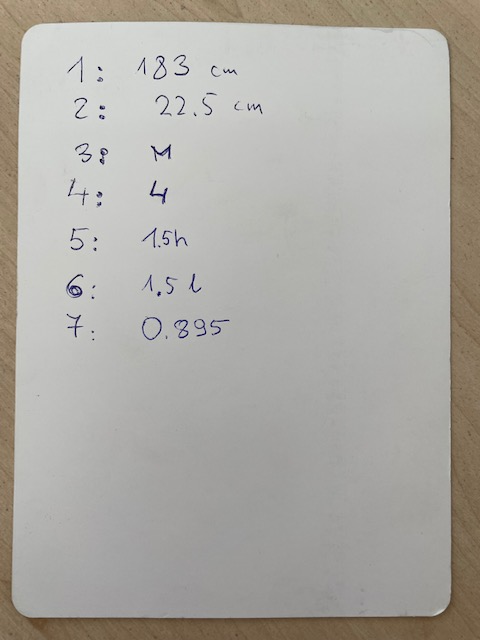 1: 183 cm
2: 22.5 cm
3: M
4: 4
5: 1.5h
6: 1.5 l
7: 0.895